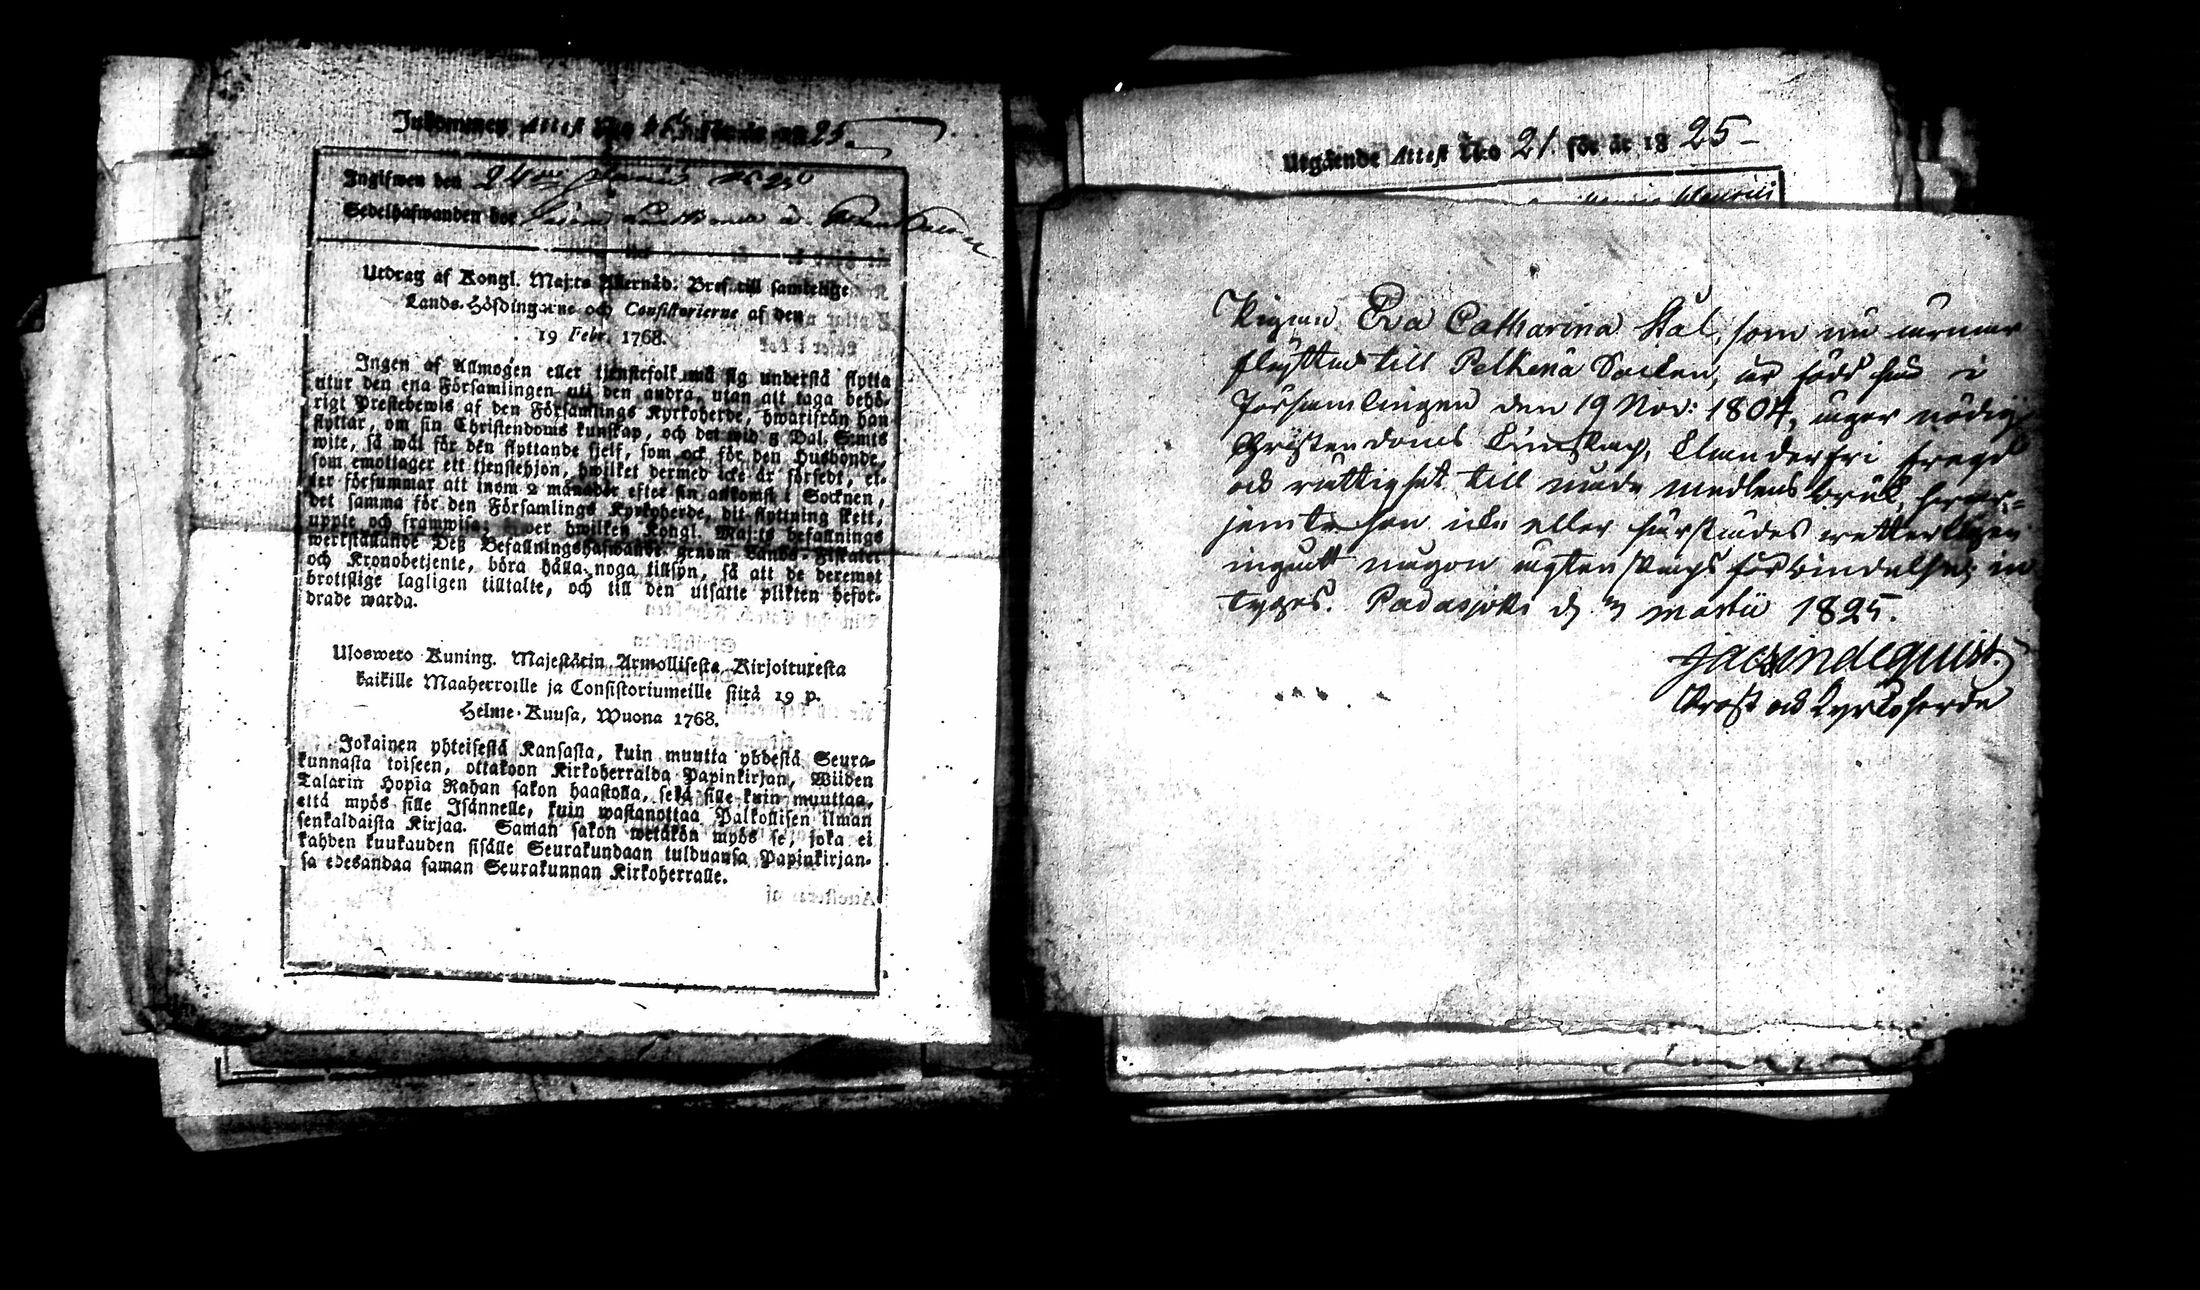 Inkommen Attest N:o för år 1825.
Ingifwen den 24
Sedelhafwanden hos
Utdrag af Kongl. Maj:ts Allernåd. Bref till samtelige
Lands-Höfdingarne och Consistorierne af den
19 Febr. 1768.
Ingen af Allmogen eller tjenstefolk må sig understå flytta
utur den ena Församlingen till den andra, utan att taga behö-
rigt Prestebewis af den Församlings Kyrkoherde, hwarifrån han
flyttar, om sin Christendoms kunskap, och det wid 5 Dal. S:mts
wite, så wäl för den flyttande sjelf, som ock för den Husbonde,
som emottager ett tjenstehjon, hwilket dermed icke är försedt, el-
ler försummar att inom 2 månader efter sin ankomst i Socknen,
det samma för den Församlings Kyrkoherde, dit flyttning skett,
uppte och framwisa; öfwer hwilken Kongl. Maj:ts befallnings
werkställande Deß Befallningshafwande genom Lands-Fiskaler
och Kronobetjente, böra hålla noga tillsyn, så att de deremot
brottslige lagligen tilltalte, och till den utsatte plikten befor-
drade warda.
Uloswero Kuning. Majestätin Armollisesta Kirjoituxesta
kaikille Maaherroille ja Consistoriumeille siitä 19 p.
Helme-Kuusa, Wuona 1768.
Jokainen yhteisestä Kansasta, kuin muutta yhdestä Seura-
kunnasta toiseen, ottakoon Kirkoherralda Papinkirjan, Wiiden
Talarin Hopia Rahan sakon haastolla, sekä sille kuin muuttaa,
että myös sille Isännelle, kuin wastanottaa Palkollisen ilman
senkaldaista Kirjaa. Saman sakon wetäkön myös se, joka ei
kahden kuukauden sisälle Seurakundaan tulduansa Papinkirjan-
sa edesandaa saman Seurakunnan Kirkoherralle.
Utgående Attest N:o 21 för år 1825
Pigan Eva Catharina Stål, som nu ärnar
flytta till Pelkene Socken, är född här i
Församlingen den 19 Nov: 1804, äger nödig
Christendoms Kunskap, Clanderfri frägd
och rättighet till medlens bruk,
jemte hon icke eller härstädes wetterligen
ingått någon ägtenskaps förbindelse, in
tygas. Padasjoki d. Martii 1825.
Jac. Indequist.
Prost och Kyrkoherde